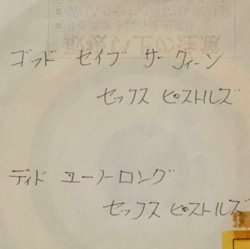 ゴッド セイブ ザ クイーン
セックス ピストルズ
ディド ユー ノー ロング
セックス ピストルズ